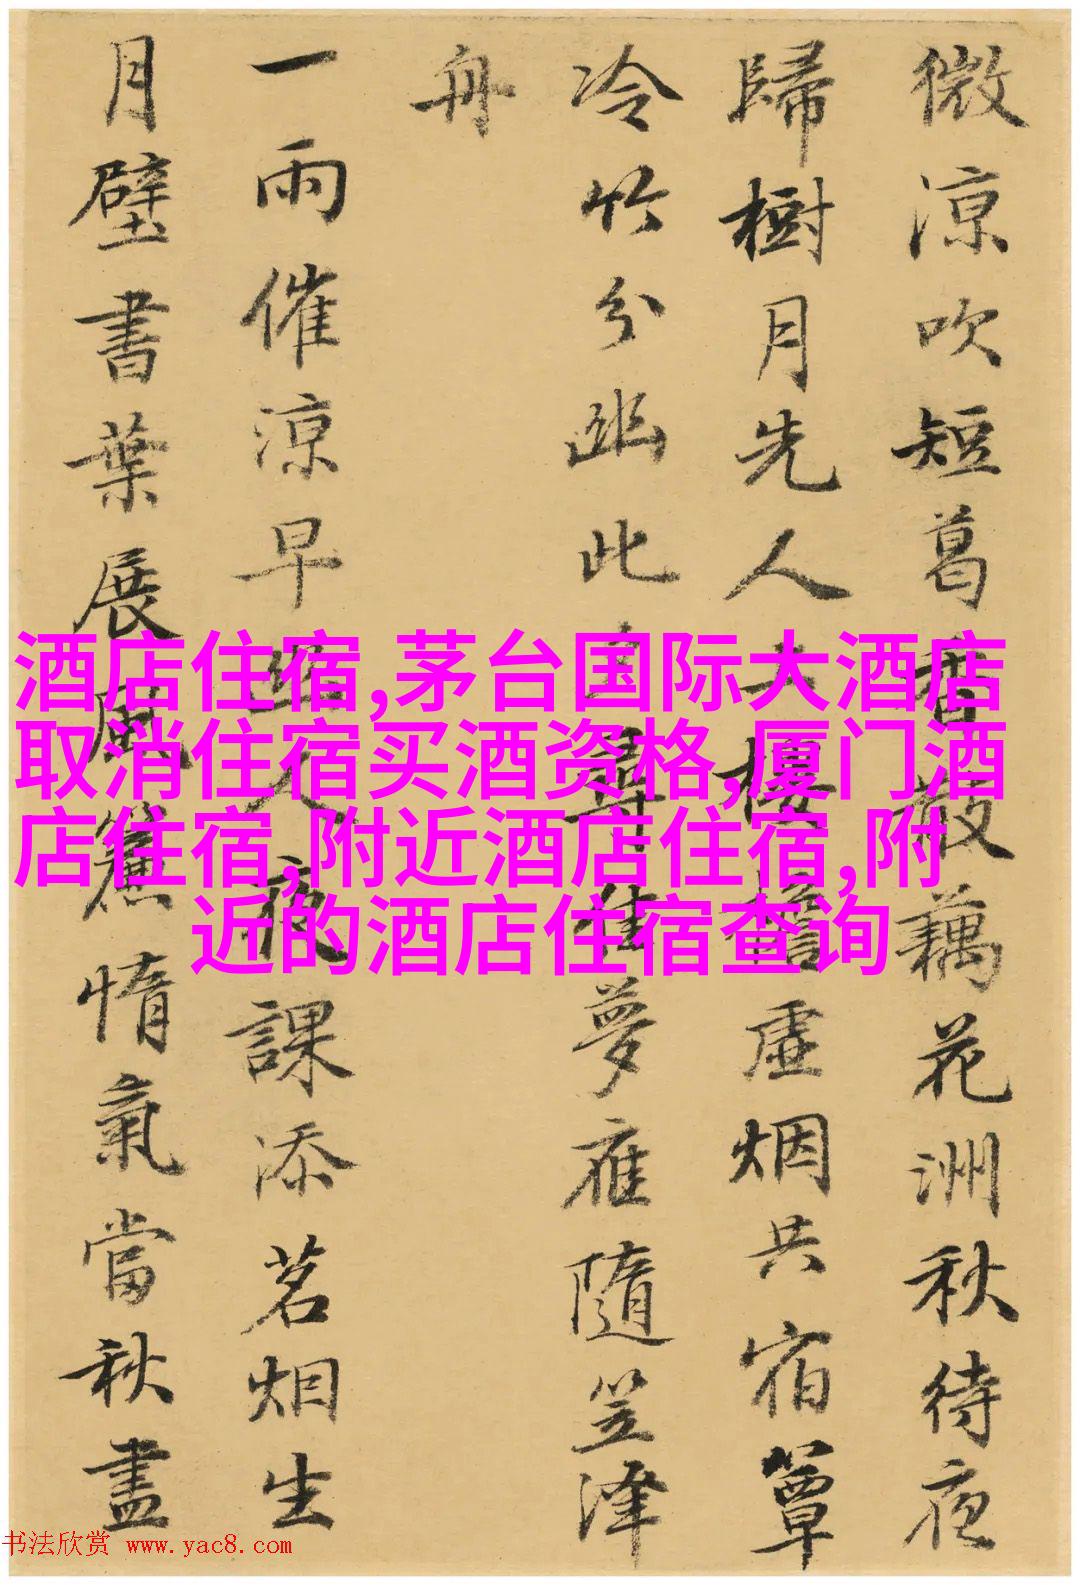 微涼吹短葛香散藕花洲秋待夜
歸樹月先人樓檐虛烟共宿簟
冷竹分幽此尋佳夢隨笠澤
舟
一雨催涼早幽人夜課添茗烟生
月壁書葉展風簾惰氣當秋盡
酒店住宿,茅台国际大酒店
取消住宿买酒资格,厦门酒
店住宿,附近酒店住宿,附
近的酒店住宿查询
书法欣赏 www.yac8.com